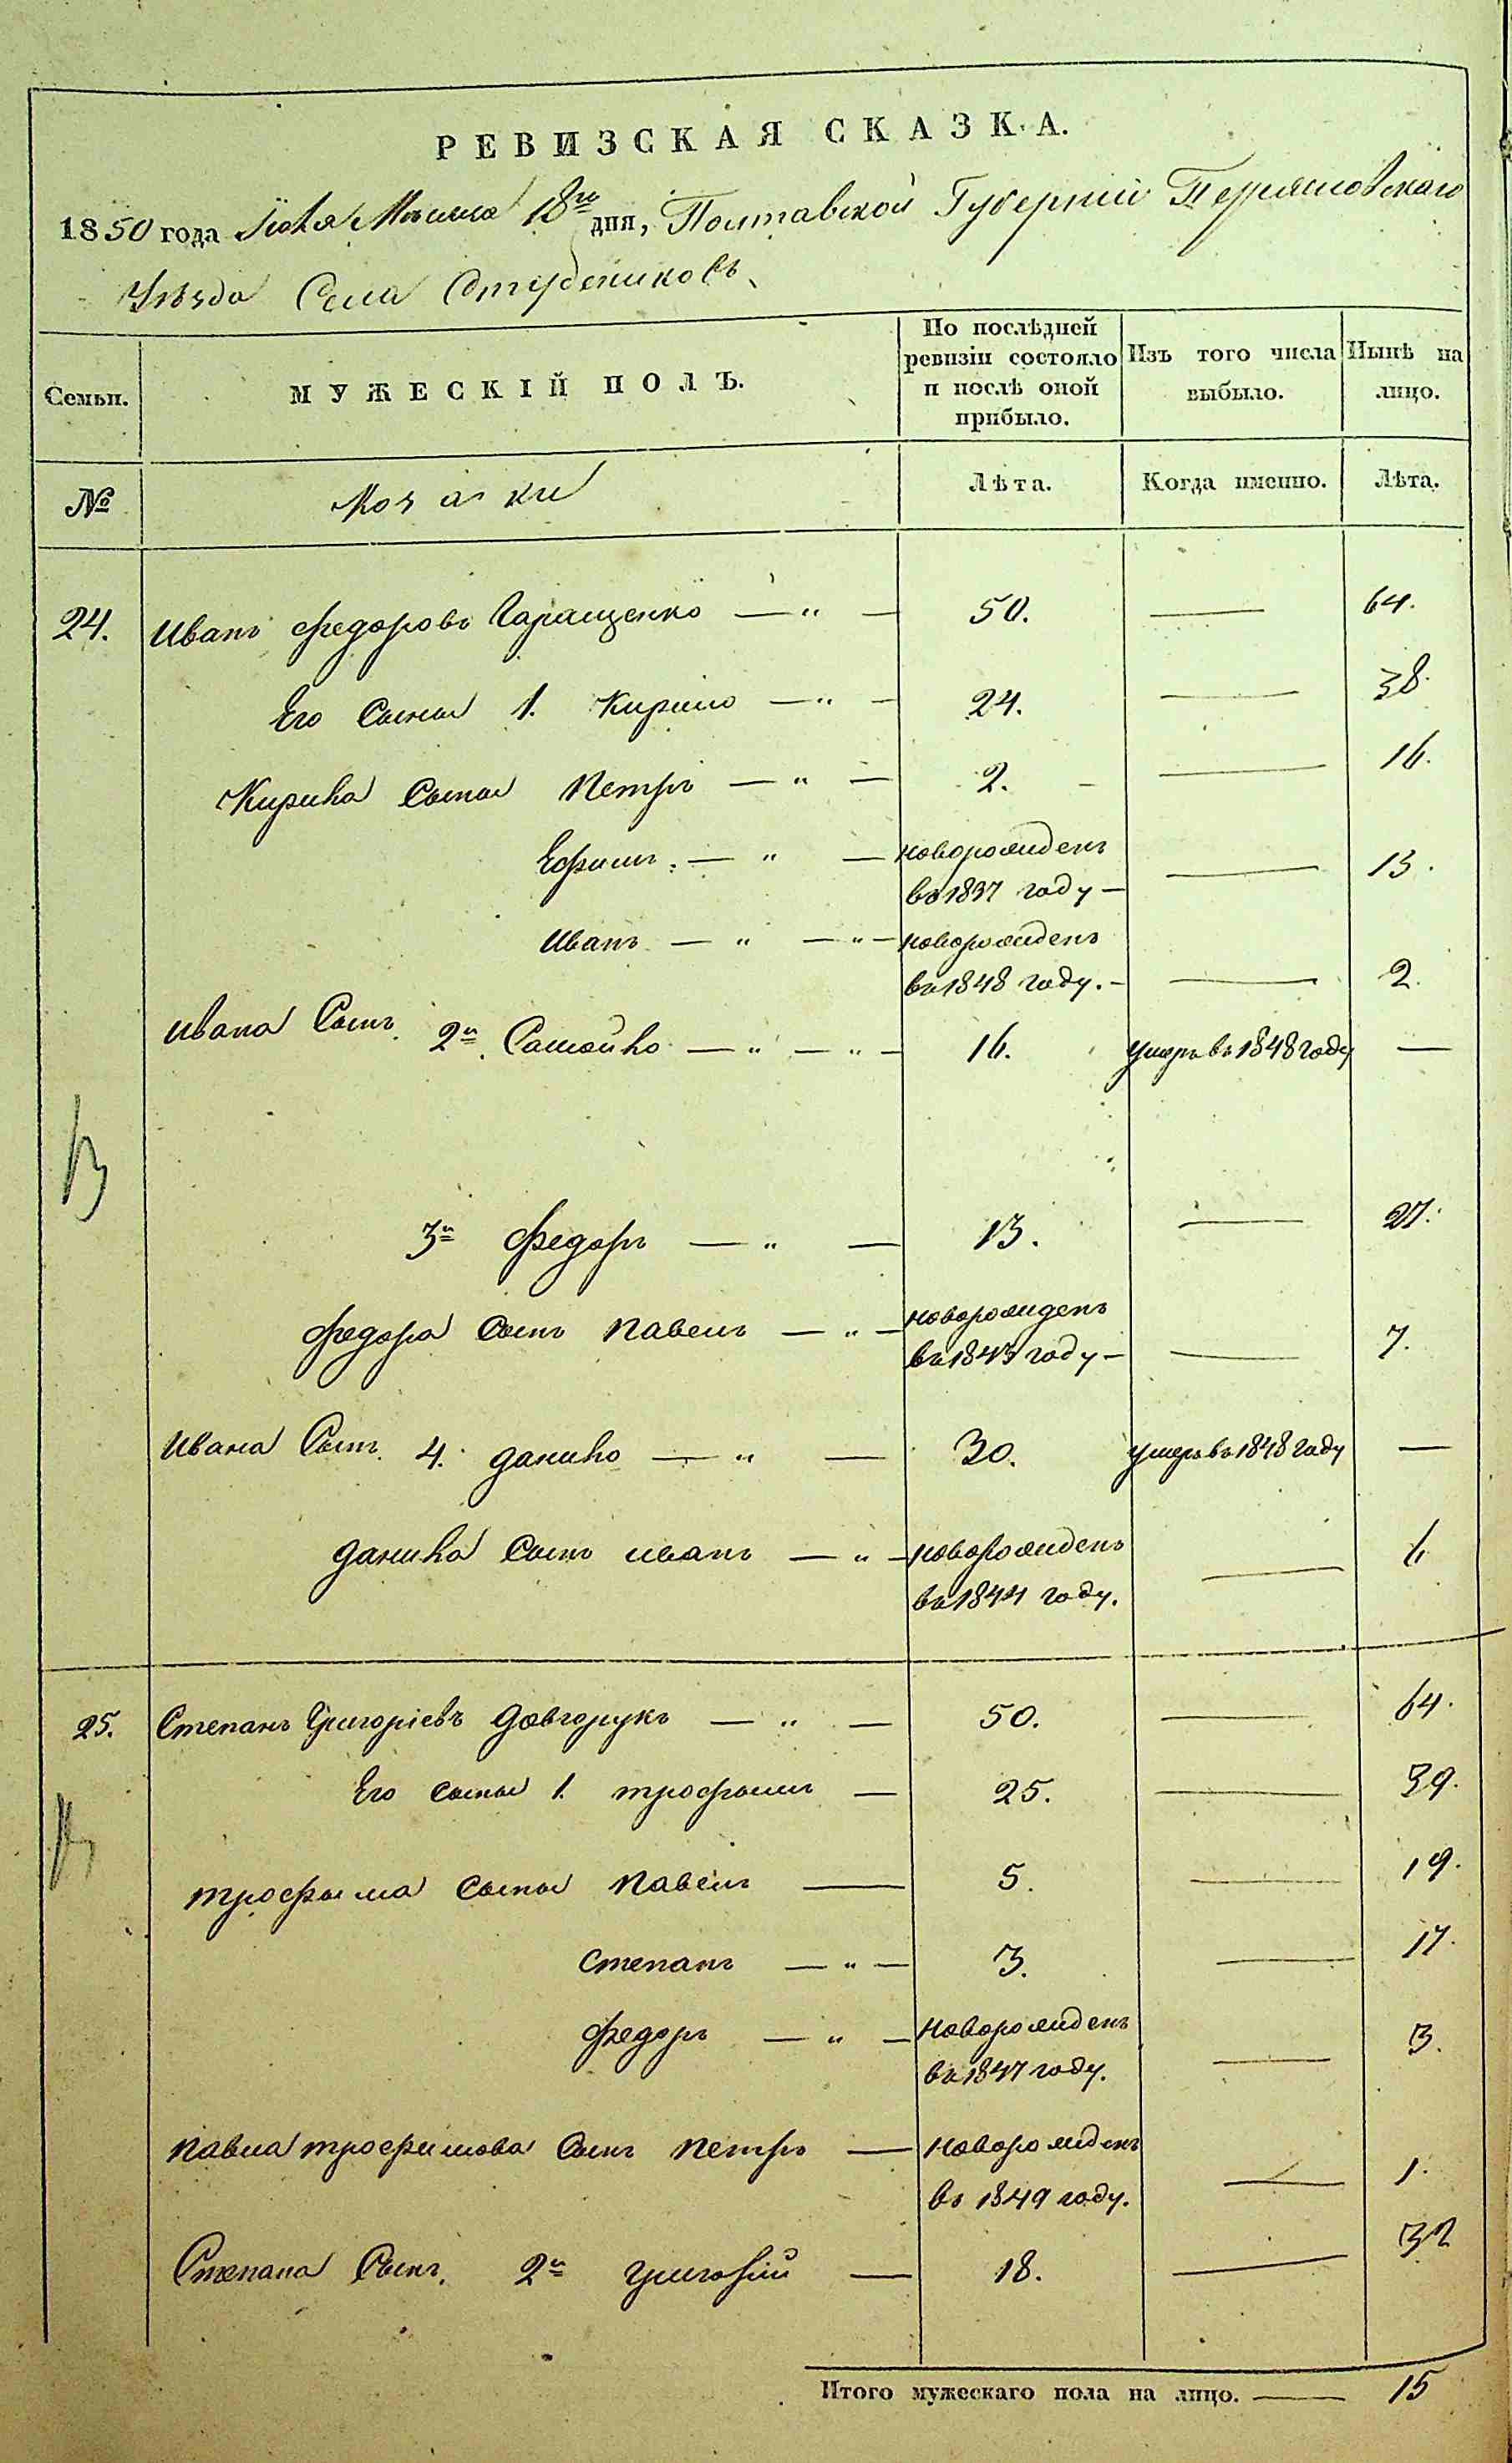 РЕВИЗСКАЯ СКАЗКА.
1850 года Июля Месяца 18го дня, Полтавской Губерніи Переясловскаго
Уѣзда Села Студениковъ
Семьи. МУЖЕСКІЙ ПОЛЪ. По послѣдней ревизіи состояло и послѣ оной прибыло. Изъ того числа выбыло. Нынѣ на лицо.
№ Козаки Лѣта. Когда именно. Лѣта.
24. Иванъ Федоровъ Гаращенко — „ — 50. — 64.
Его Сыны 1. Кирило — „ — 24. — 38.
Кирила Сыны Петръ — „ — 2. — 16.
Ефимъ. — „ — новорожденъ
въ 1837 году — — 13.
Иванъ — „ — „ — новорожденъ
въ 1848 году. — — 2.
Ивана Сынъ. 2й Самойло — „ — „ — 16. умеръ въ 1848 году —
3й Федоръ — „ — 13. — 27.
Федора Сынъ Павелъ — „ — новорожденъ
въ 1843 году — — 7.
Ивана Сынъ. 4. Данило — „ — 30. умеръ въ 1848 году —
Данила Сынъ Иванъ — „ — новорожденъ
въ 1844 году. — 6
25. Степанъ Григоріевъ Довгорукъ — „ — 50. — 64.
Его сыны 1. Трофымъ — 25. — 39.
Трофыма Сыны Павелъ — 5. — 19.
Степанъ — „ — 3. — 17.
Федоръ — „ — новорожденъ
въ 1847 году. — 3.
Павла Трофимова Сынъ Петръ — новорожденъ
въ 1849 году. — 1.
Степана Сынъ. 2й Григорій — 18. — 32
Итого мужескаго пола на лицо. — 15